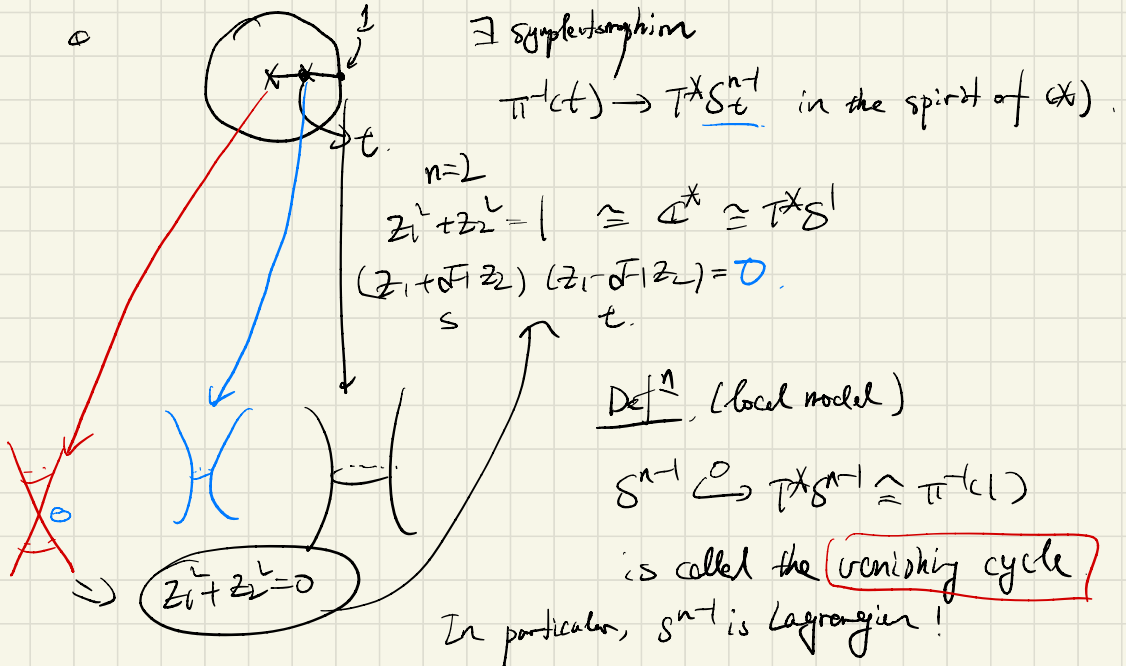 1
∃ symplectomorphism
π⁻¹(t) → T*S_t^{n-1} in the spirit of (*).
t.
n=2
z₁² + z₂² = 1 ≅ ℂ* ≅ T*S¹
(z₁+√-1 z₂) (z₁-√-1 z₂) = 0.
s t.
Defⁿ. (local model)
S^{n-1} ↪0 T*S^{n-1} ≅ π⁻¹(1)
0
is called the vanishing cycle
=> z₁² + z₂² = 0
In particular, S^{n-1} is Lagrangian!